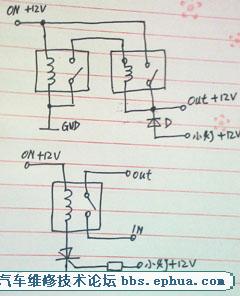 ON +12V
GND
Out +12V
D
小灯 +12V
ON +12V
out
IN
小灯 +12V
汽车维修技术论坛 bbs.ephua.com